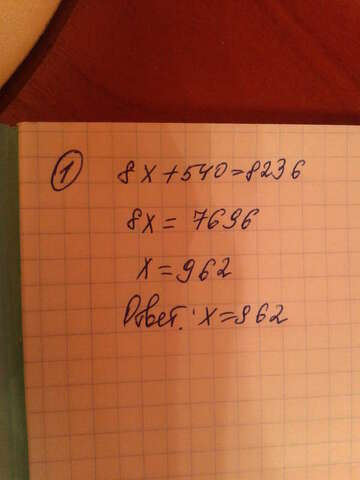 ① 8x+540=8236
8x = 7696
x = 962
Ответ: x=962